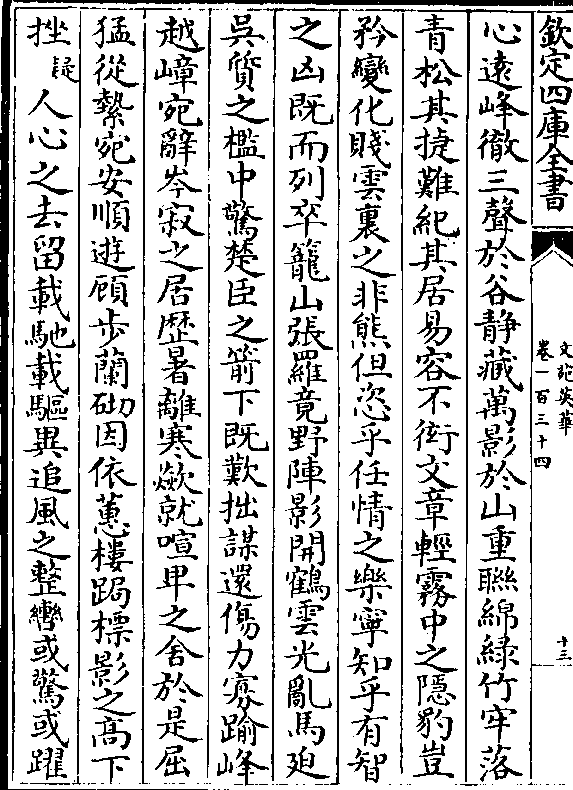 欽定四庫全書
文苑英華
卷一百三十四
十三
心遠峰徹三聲於谷静藏萬影於山重聯綿緑竹牢落
青松其捷難紀其居易容不衒文章輕霧中之隱豹豈
矜變化賤雲裏之非熊但恣乎任情之樂寧知乎有智
之凶既而列卒籠山張羅竟野陣影開鶴雲光亂馬廹
吳質之檻中驚楚臣之箭下既歎拙謀還傷力寡踰峰
越嶂宛辭岑寂之居歴暑離寒歘就喧卑之舍於是屈
猛從縶宛安順遊顧歩蘭砌因依蕙樓跼標影之高下
挫疑人心之去留載馳載驅異追風之整轡或驚或躍